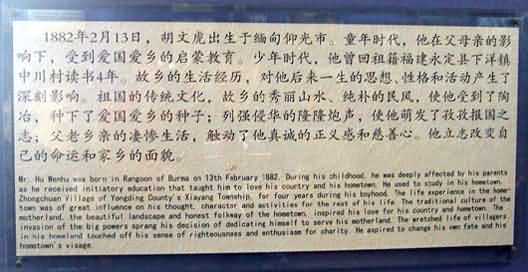 1882年2月13日，胡文虎出生于缅甸仰光市。童年时代，他在父母亲的影
响下，受到爱国爱乡的启蒙教育。少年时代，他曾回祖籍福建永定县下洋镇
中川村读书4年。故乡的生活经历，对他后来一生的思想、性格和活动产生了
深刻影响。祖国的传统文化，故乡的秀丽山水、纯朴的民风，使他受到了陶
冶，种下了爱国爱乡的种子；列强侵华的隆隆炮声，使他萌发了孜孜报国之
志；父老乡亲的凄惨生活，触动了他真诚的正义感和慈善心。他立志改变自
己的命运和家乡的面貌。
Mr. Hu Wenhu was born in Rangoon of Burma on 13th February 1882. During his childhood, he was deeply affected by his parents
as he received initiatory education that taught him to love his country and his hometown. He used to study in his hometown,
Zhongchuan Village of Yongding County's Xiayang Township, for four years during his boyhood. The life experience in the home-
town was of great influence on his thought, charactor and activities for the rest of his life. The traditional culture of the
motherland, the beautiful landscape and honest folkway of the hometown, inspired his love for his country and hometown. The
invasion of the big powers sprang his decision of dedicating himself to serve his motherland. The wretched life of villagers
in his homeland touched off his sense of righteousness and enthusiasm for charity. He aspired to change his own fate and his
hometown's visage.